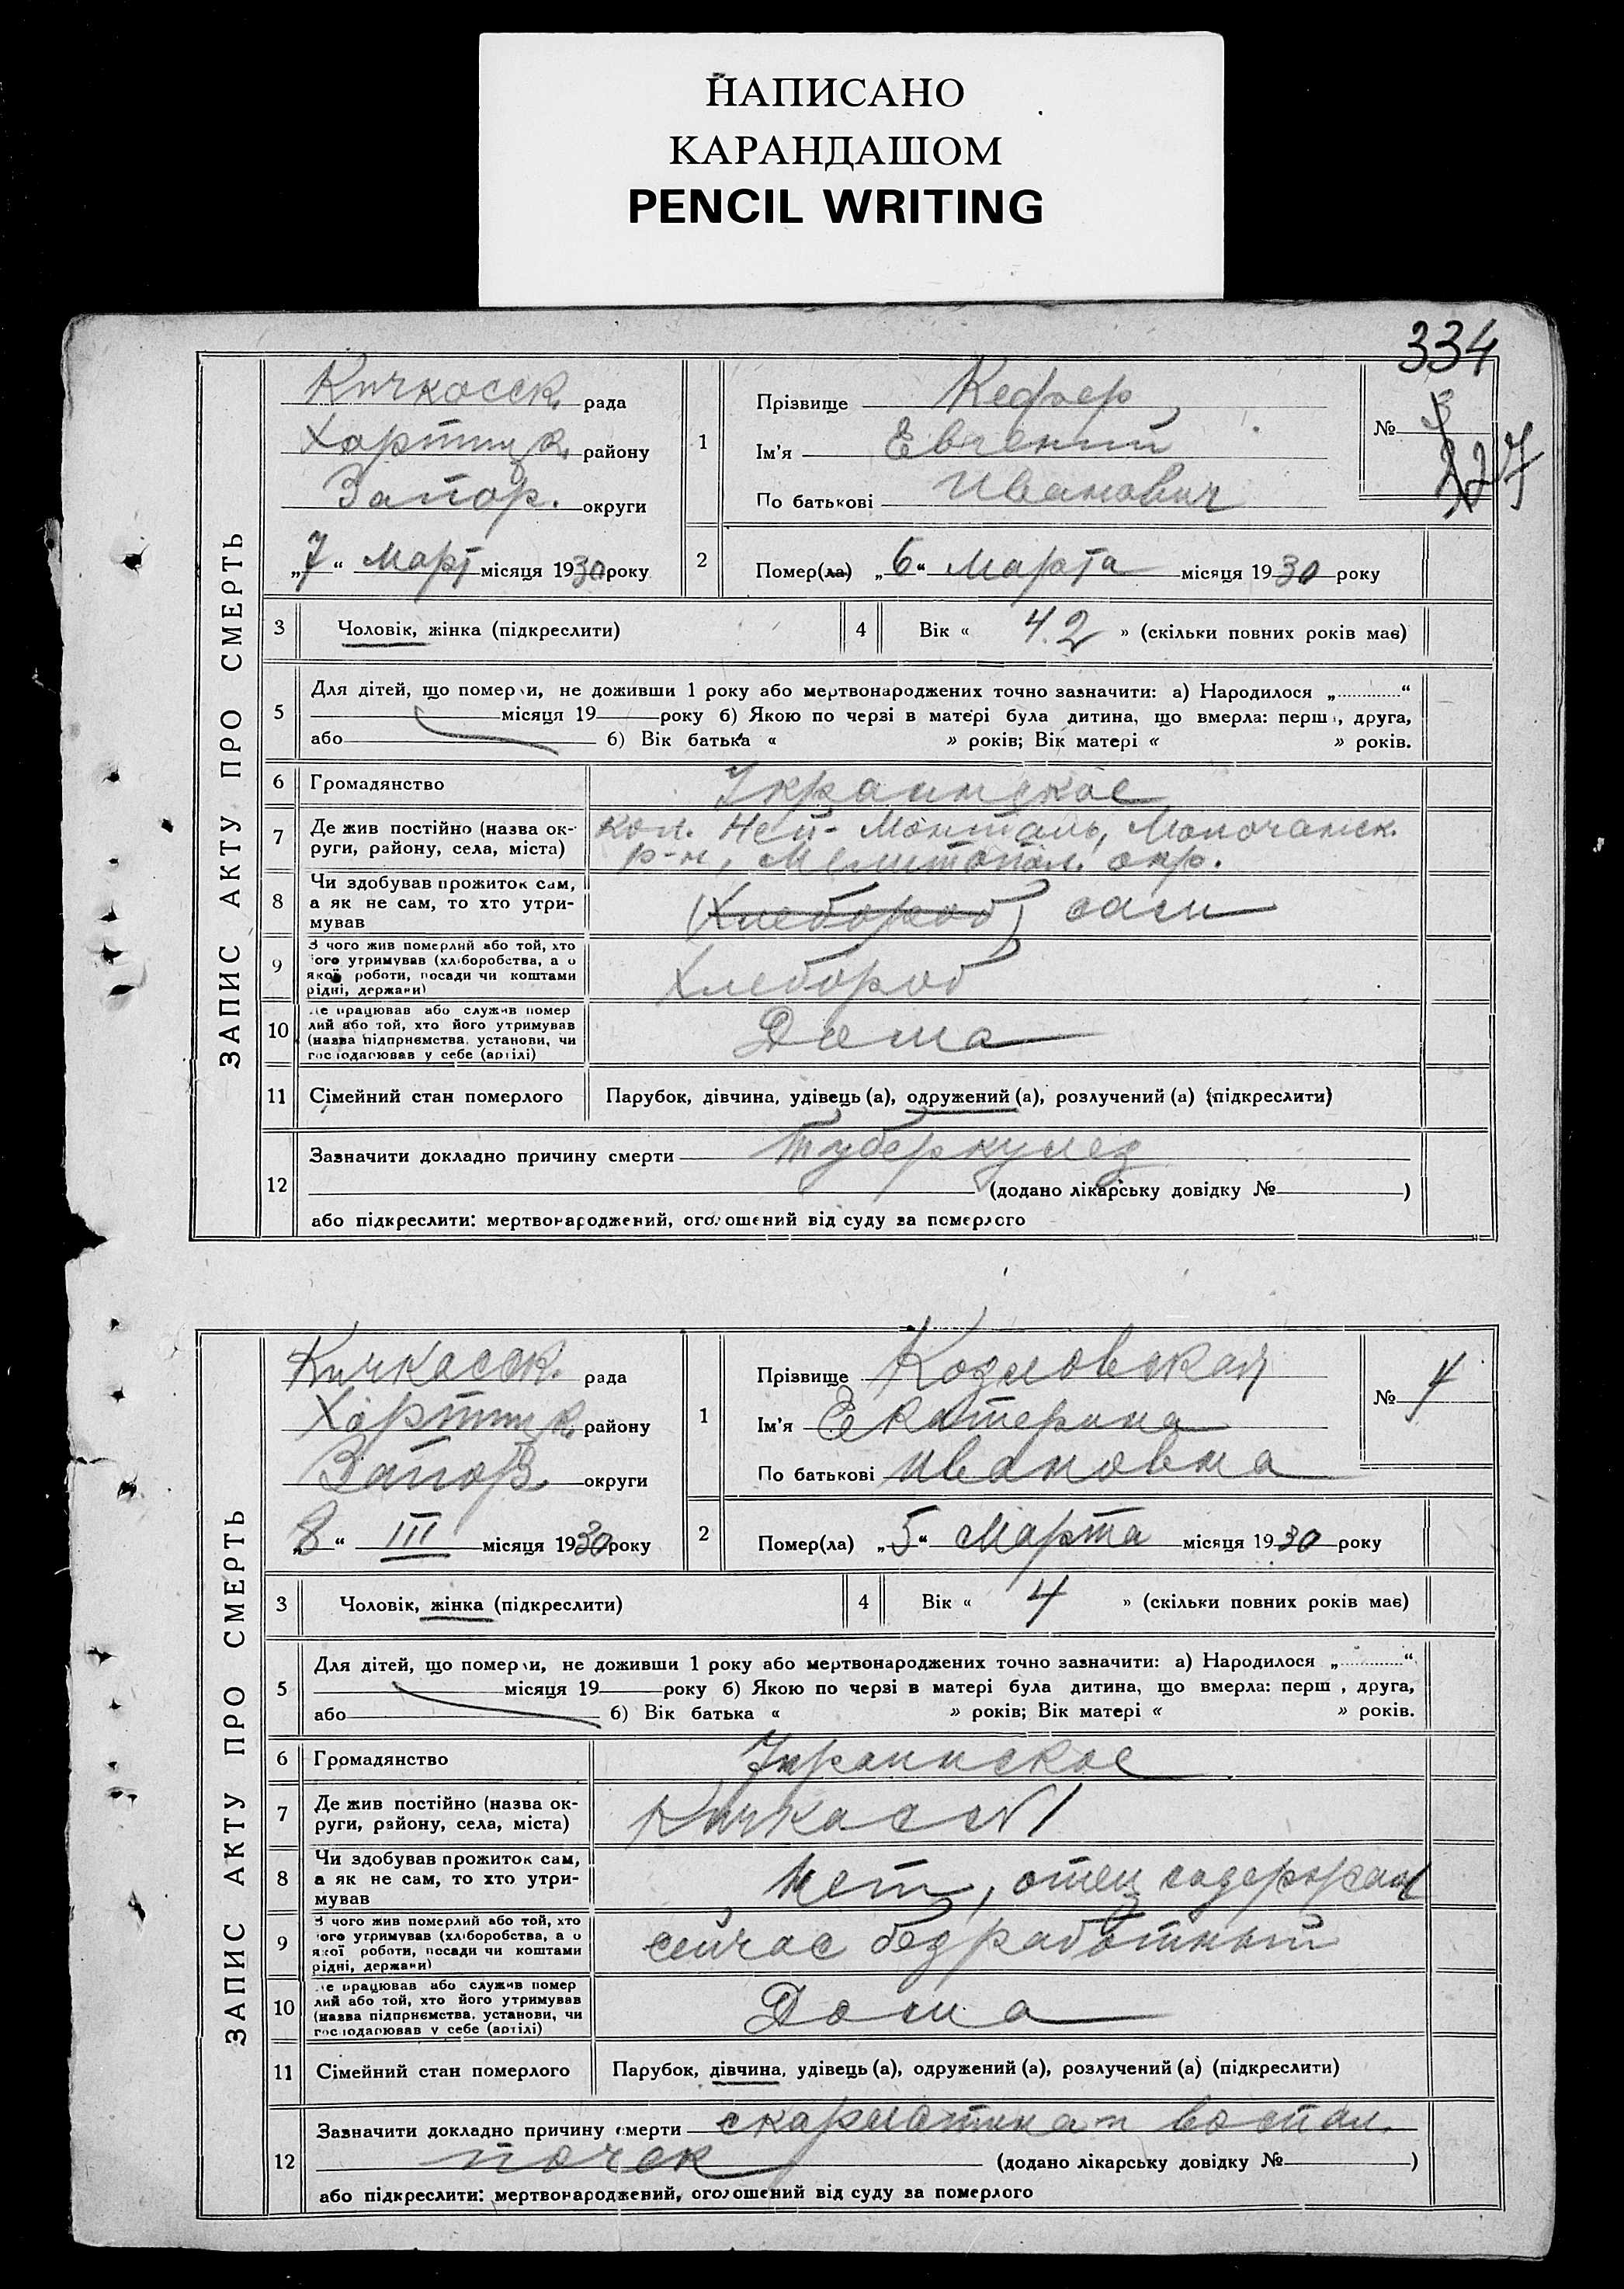 НАПИСАНО
КАРАНДАШОМ
PENCIL WRITING
334
ЗАПИС АКТУ ПРО СМЕРТЬ
Кичкасск. рада
Хортицк. району
Запор. округи
„7“ Март місяця 1930 року
1
Прізвище Кефер
Ім'я Евгений
По батькові Иванович
№ 3
227
2
Помер(ла) „6“ Марта місяця 1930 року
3 Чоловік, жінка (підкреслити)
4 Вік « 42 » (скільки повних років має)
5
Для дітей, що померли, не доживши 1 року або мертвонароджених точно зазначити: а) Народилося „ “
місяця 19 року б) Якою по черзі в матері була дитина, що вмерла: перш , друга,
або б) Вік батька « » років; Вік матері « » років.
6 Громадянство Украинское
7
Де жив постійно (назва ок-
руги, району, села, міста)
кол. Ней-Монталь, Молочанск.
р-н, Мелитопол. окр.
8
Чи здобував прожиток сам,
а як не сам, то хто утри-
мував
(Хлебороб) сам
9
З чого жив померлий або той, хто
його утримував (хліборобства, а о
якої роботи, посади чи коштами
рідні, держави)
Хлебороб
10
Де працював або служив помер
лий або той, хто його утримував
(назва підприємства, установи, чи
господарював у себе (артілі)
Дома
11 Сімейний стан померлого Парубок, дівчина, удівець (а), одружений (а), розлучений (а) (підкреслити)
12
Зазначити докладно причину смерти Туберкулез
(додано лікарську довідку № )
або підкреслити: мертвонароджений, оголошений від суду за померлого
ЗАПИС АКТУ ПРО СМЕРТЬ
Кичкасск. рада
Хортицк. району
Запор. округи
„8“ III місяця 1930 року
1
Прізвище Козловская
Ім'я Екатерина
По батькові Ивановна
№ 4
2
Помер(ла) „5“ Марта місяця 1930 року
3 Чоловік, жінка (підкреслити)
4 Вік « 4 » (скільки повних років має)
5
Для дітей, що померли, не доживши 1 року або мертвонароджених точно зазначити: а) Народилося „ “
місяця 19 року б) Якою по черзі в матері була дитина, що вмерла: перш , друга,
або б) Вік батька « » років; Вік матері « » років.
6 Громадянство Украинское
7
Де жив постійно (назва ок-
руги, району, села, міста)
Кичкас №1
8
Чи здобував прожиток сам,
а як не сам, то хто утри-
мував
Нет, отец содержал
9
З чого жив померлий або той, хто
його утримував (хліборобства, а о
якої роботи, посади чи коштами
рідні, держави)
сейчас безработный
10
Де працював або служив помер
лий або той, хто його утримував
(назва підприємства, установи, чи
господарював у себе (артілі)
Дома
11 Сімейний стан померлого Парубок, дівчина, удівець (а), одружений (а), розлучений (а) (підкреслити)
12
Зазначити докладно причину смерти скарлатина и воспал.
почек
(додано лікарську довідку № )
або підкреслити: мертвонароджений, оголошений від суду за померлого